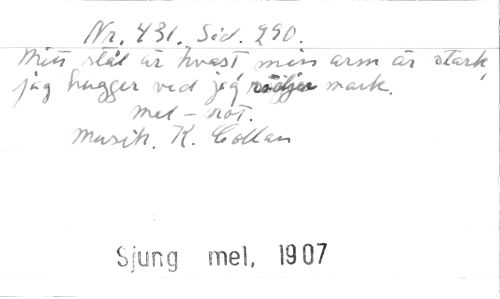 Nr. 431. Sid. 290.
Mitt stål är hvast min arm är stark,
jag hugger ved jag rödjer mark.
mel - röt.
Musik. K. Collan
Sjung mel, 1907